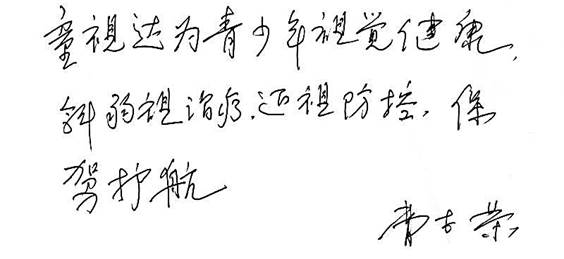 童视达为青少年视觉健康,
斜弱视治疗.近视防控.保
驾护航